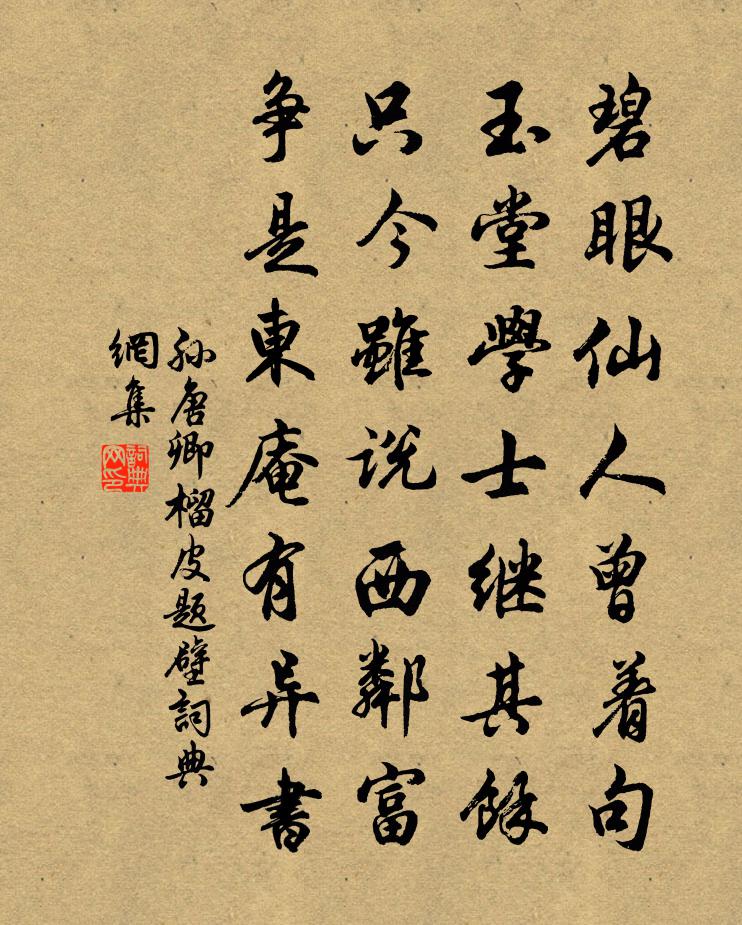 碧眼仙人曾着句
玉堂學士继其餘
只今雖说西鄰富
争是東庵有异書
孙唐卿榴皮题壁詞典
網集
詞典
网印